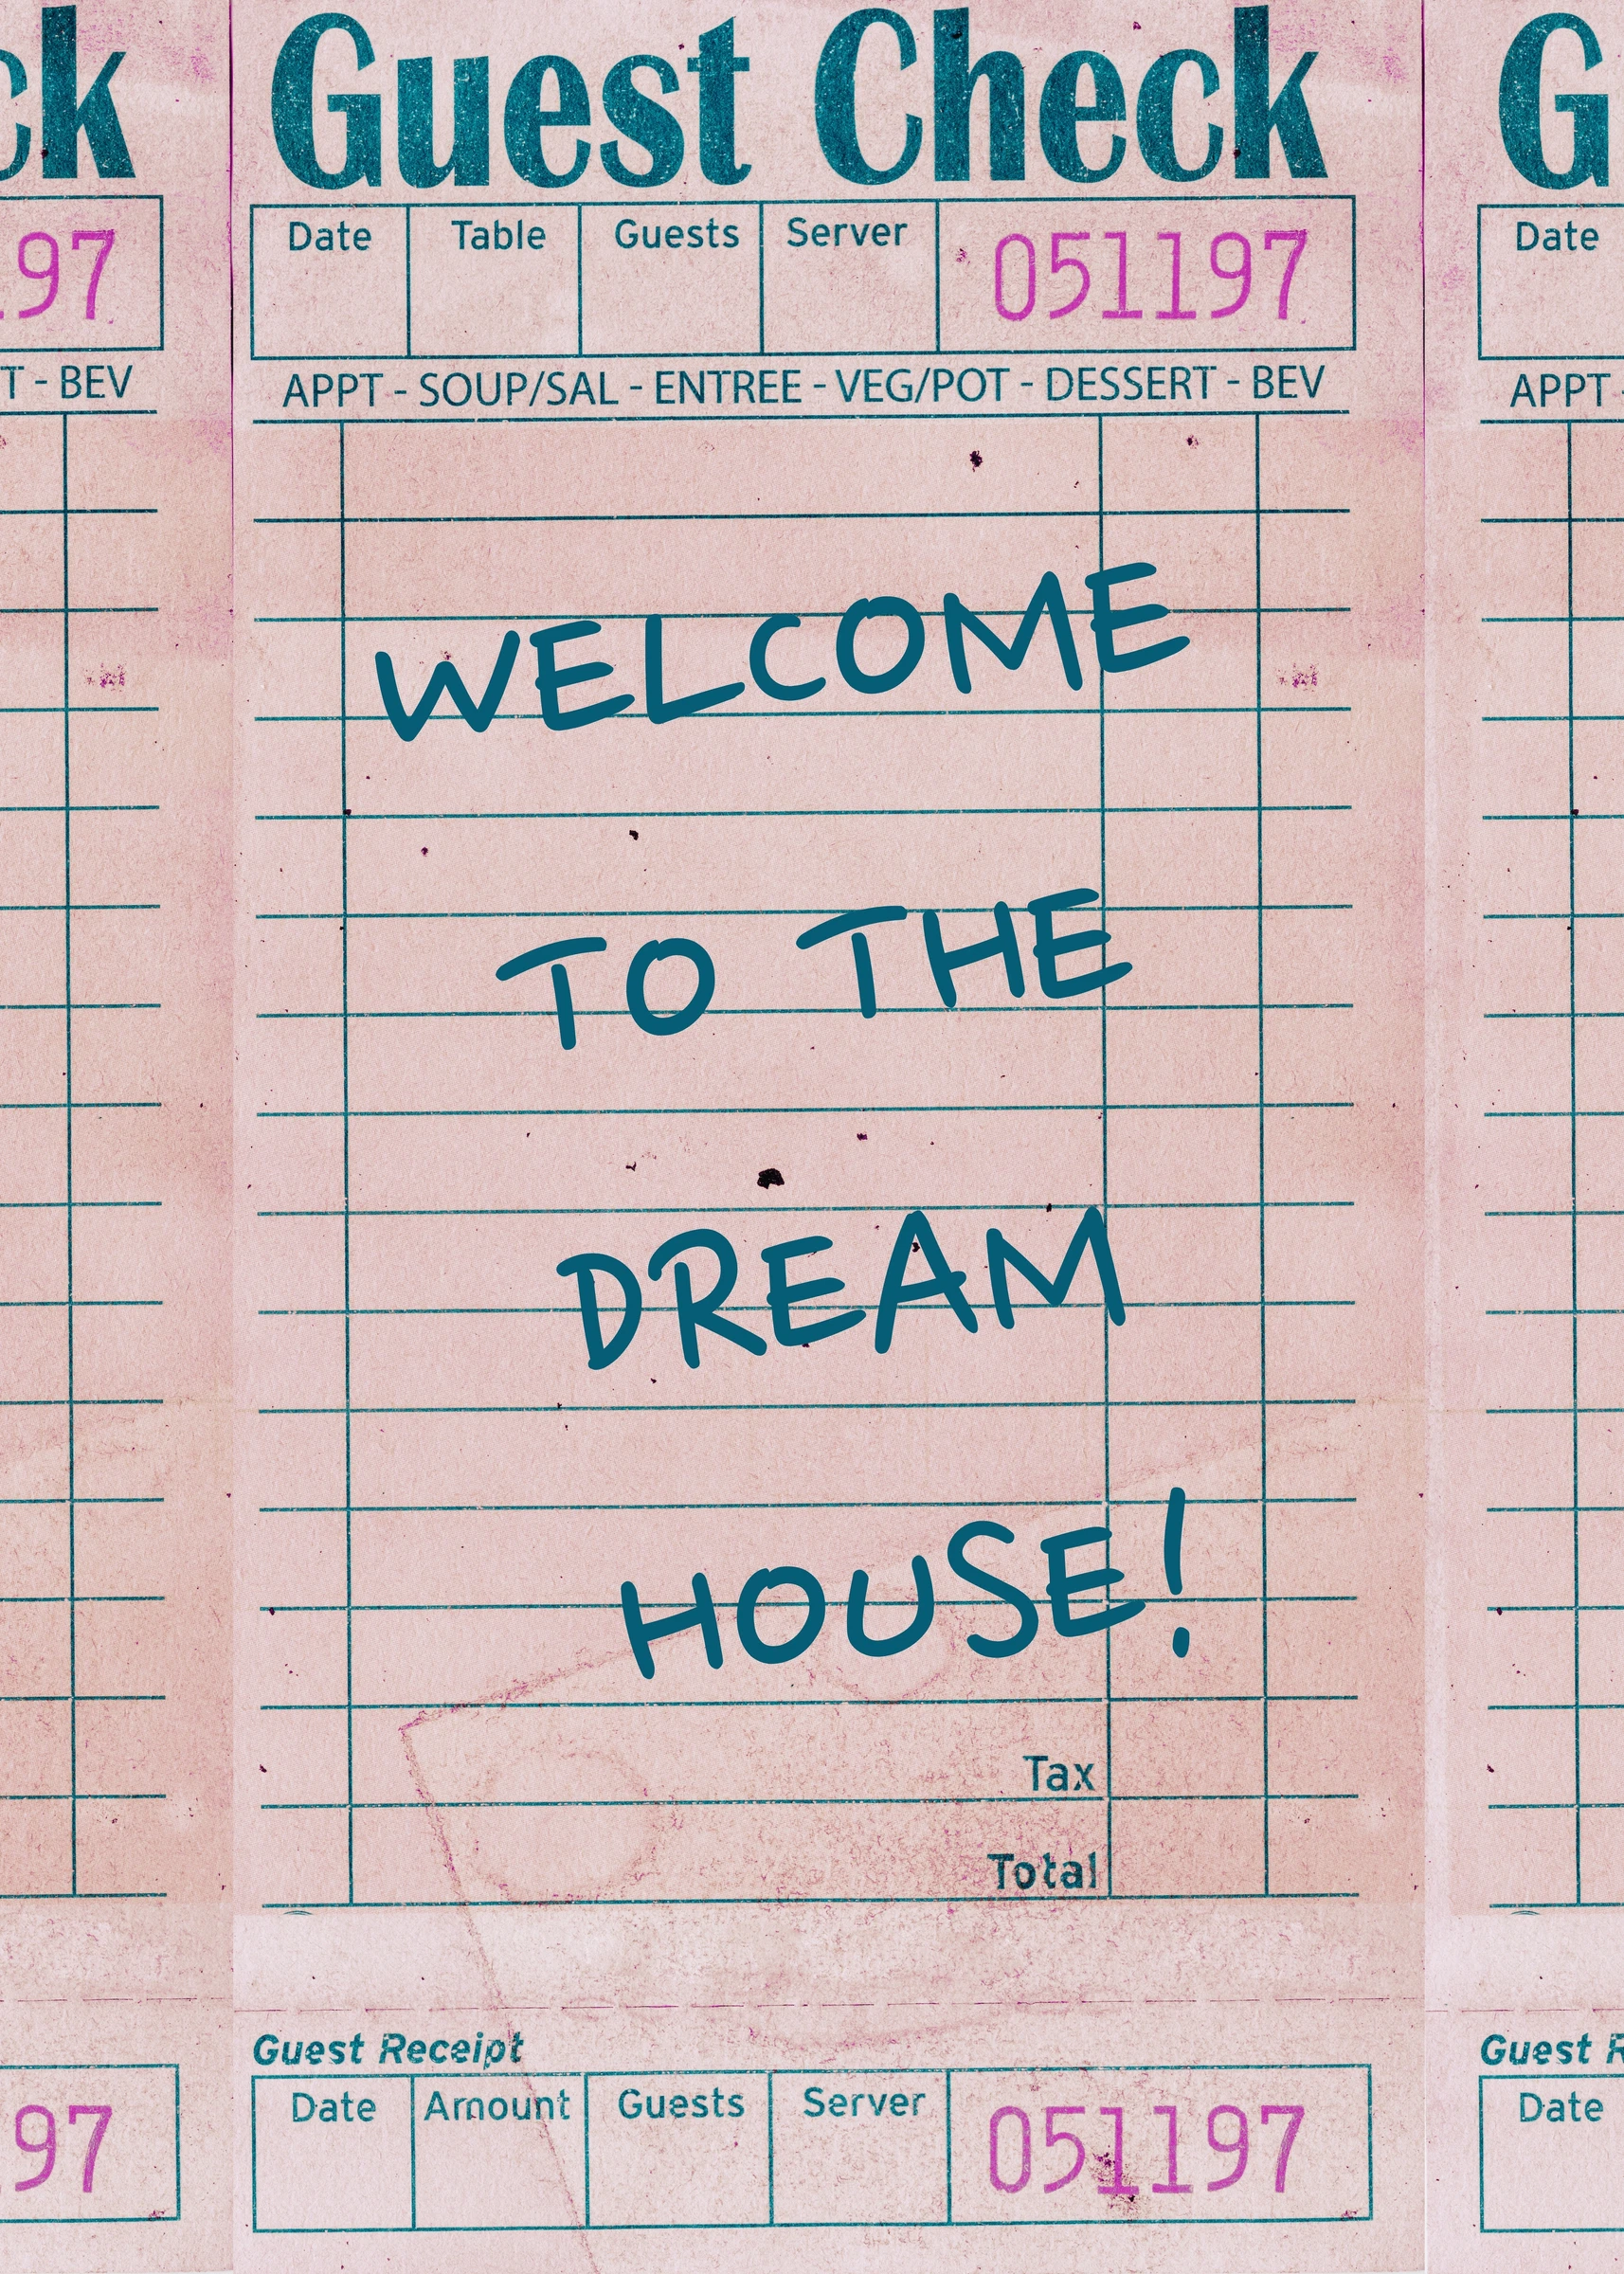 ck Guest Check G
Date Table Guests Server 051197
97 Date
T - BEV APPT - SOUP/SAL - ENTREE - VEG/POT - DESSERT - BEV APPT
WELCOME
TO THE
DREAM
HOUSE!
Tax
Total
Guest Receipt Guest R
Date Amount Guests Server 051197
97 Date